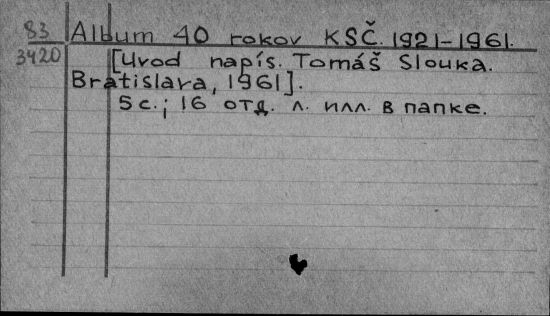 83 Album 40 rokov KSČ. 1921-1961.
3420 [Úvod napís. Tomáš Slouka.
Bratislava, 1961].
5 с.; 16 отд. л. илл. в папке.